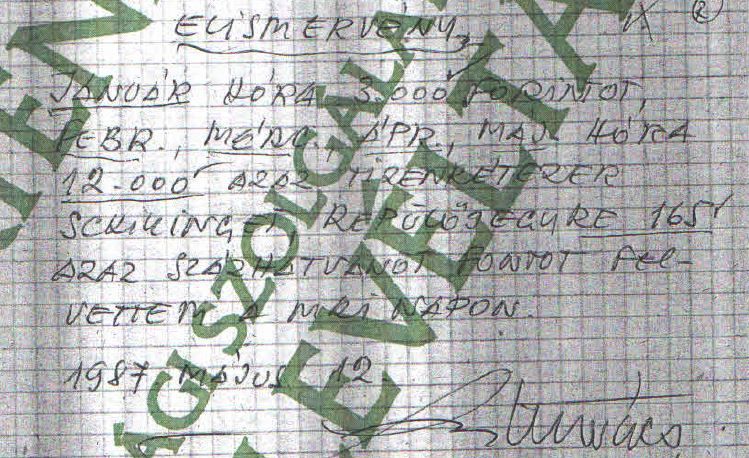 ELISMERVÉNY
2
JANUÁR HÓRA 3.000 FORINTOT,
FEBR., MÁRC., ÁPR., MÁJ. HÓRA
12.000 AZAZ TIZENKÉTEZER
SCHILLINGET REPÜLŐJEGYRE 165
AZAZ SZÁZHATVANÖT FONTOT FEL-
VETTEM A MAI NAPON.
1987 MÁJUS 12.